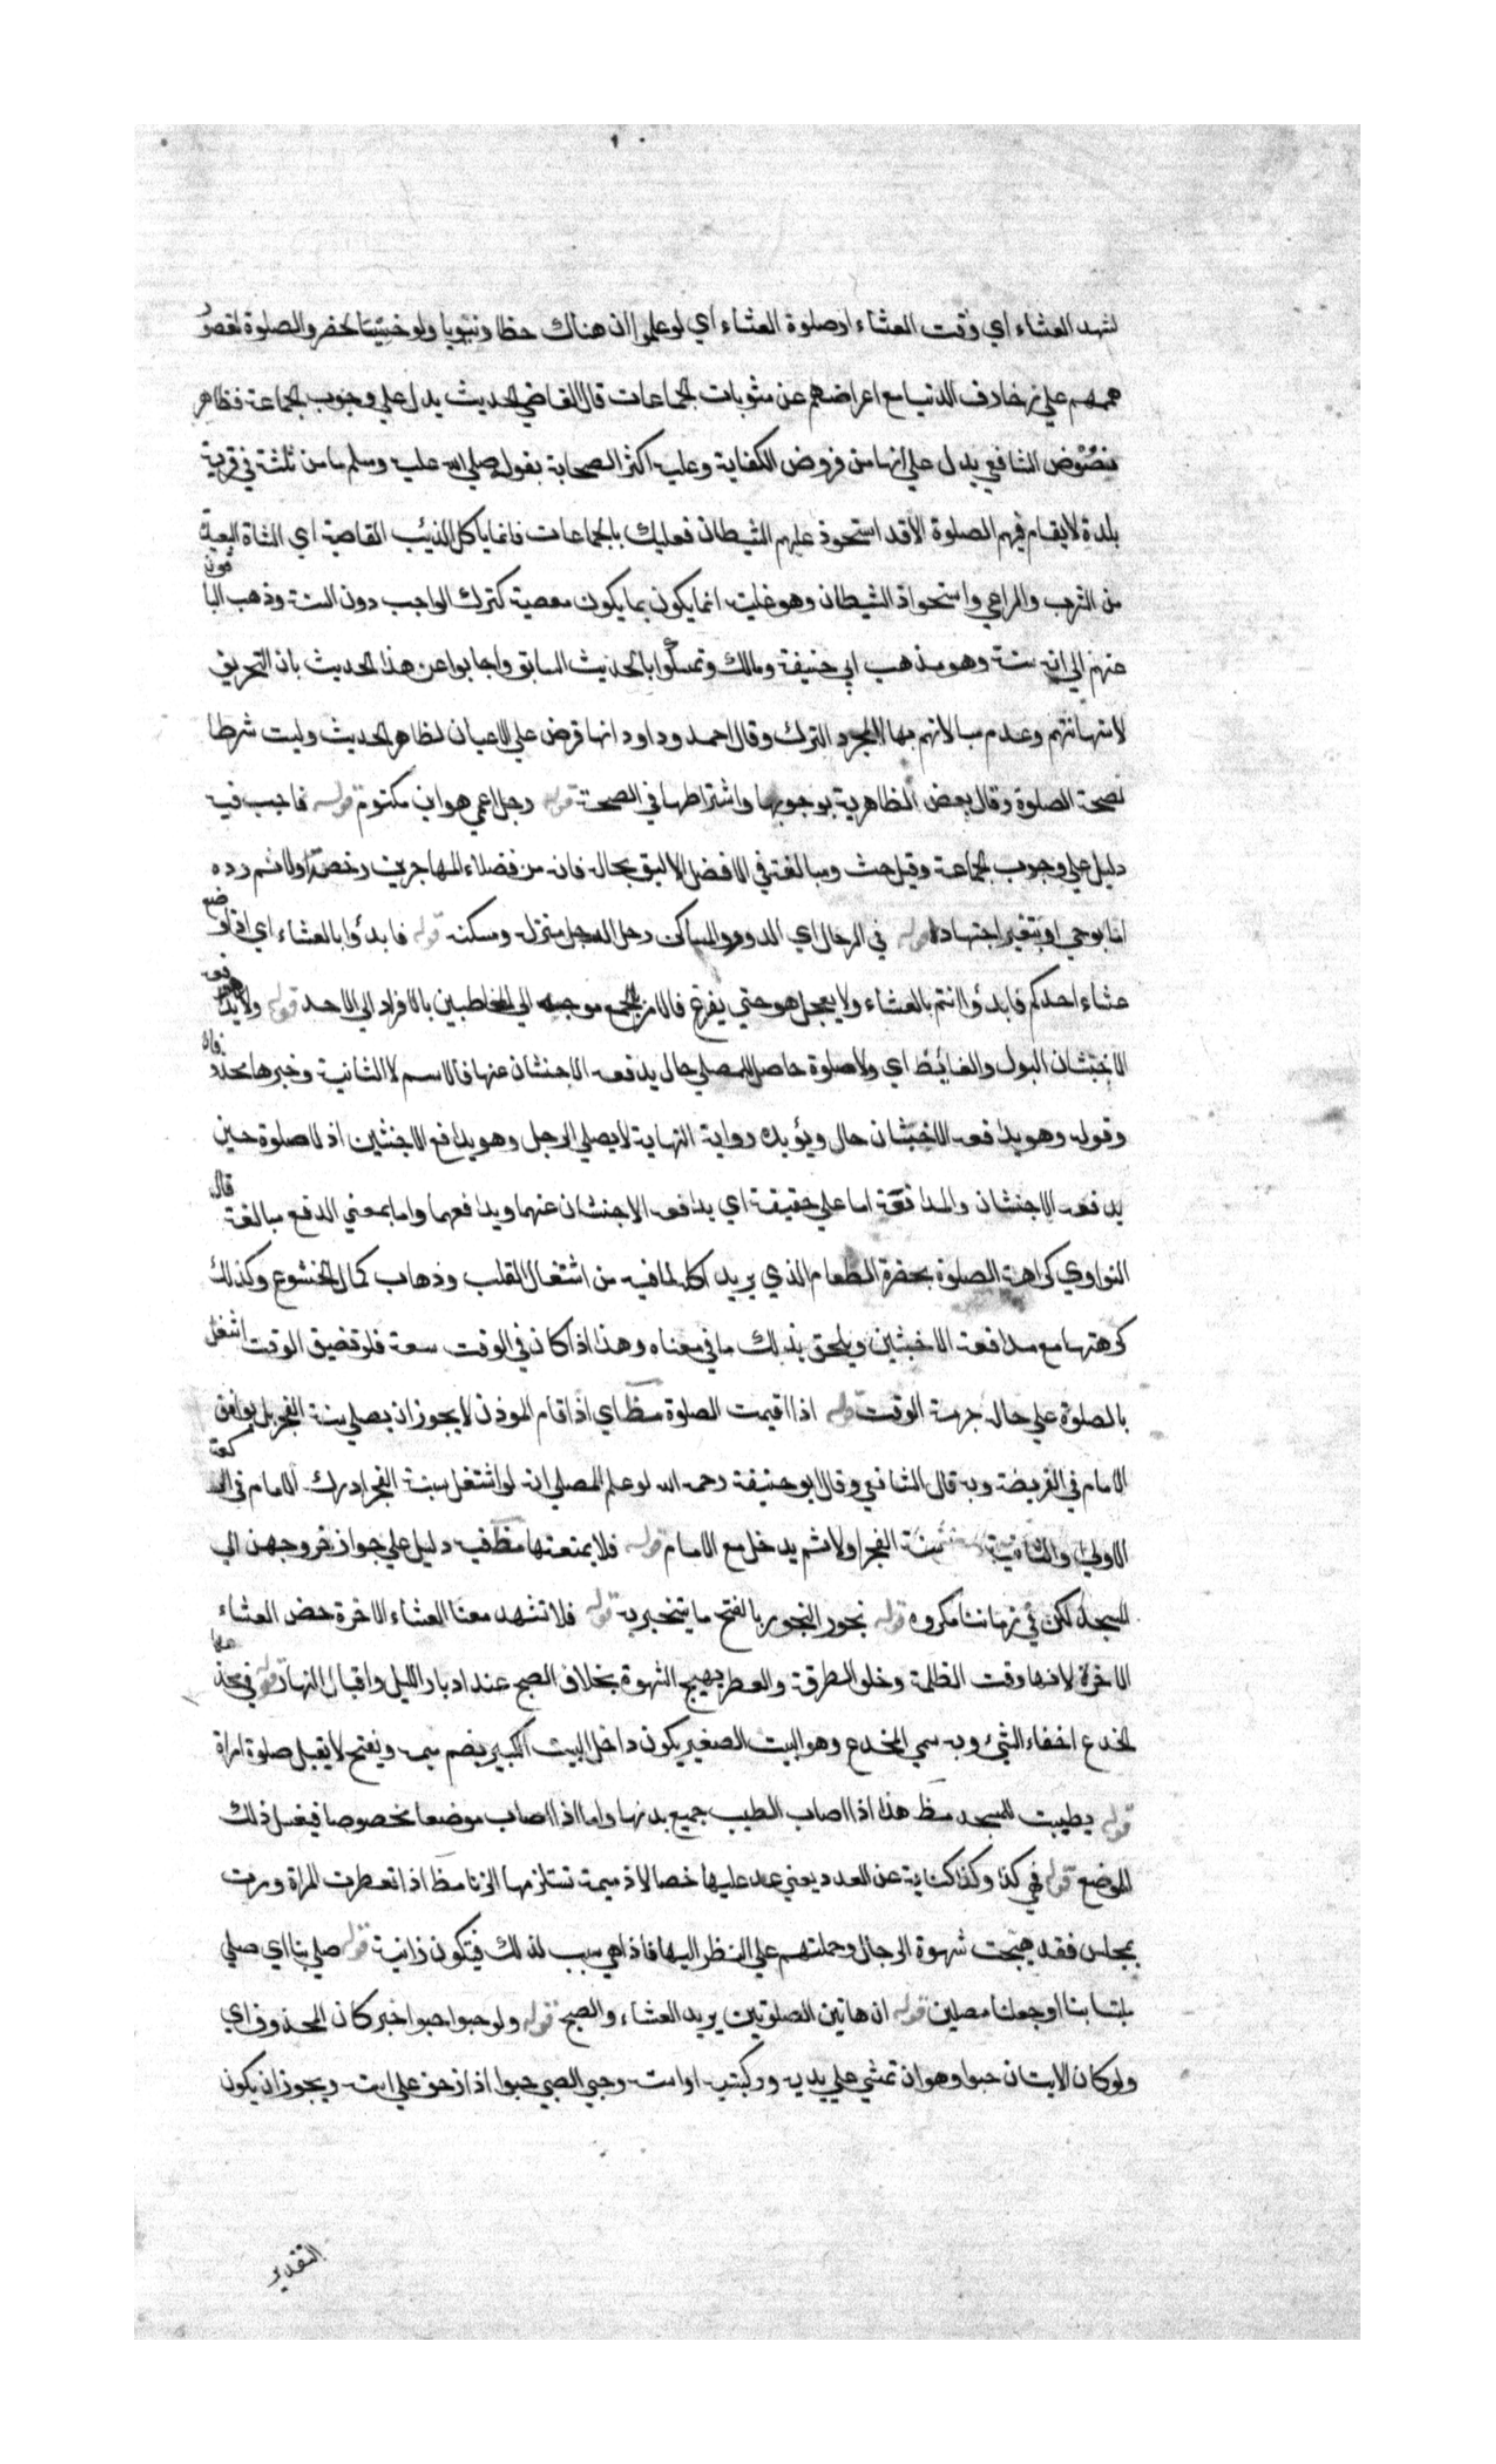 لشهد العشاء اي وقت العشاء او صلوة العشاء اي لو علموا ان هناك حظا دنيويا ولو خسيسا لحضروا الصلوة لقصور
هممهم علي زخارف الدنيا مع اعراضهم عن مثوبات الجماعات قال القاضي الحديث يدل علي وجوب الجماعة فظاهر
نصوص الشافعي يدل علي انها من فروض الكفاية وعليه اكثر الصحابة بقوله صلي الله عليه وسلم ما من ثلثة في قرية
بلدة لا يقام فيهم الصلوة الا قد استحوذ عليهم الشيطان فعليك بالجماعات فانما ياكل الذئب القاصية اي الشاة البعيدة
من السرب والراعي واستحواذ الشيطان وهو غلبته انما يكون بما يكون معصية كترك الواجب دون السنة وذهب الباقون
عنهم الي انه سنة وهو مذهب ابي حنيفة ومالك وتمسكوا بالحديث السابق واجابوا عن هذا الحديث بان التحريق
لاستهانتهم وعدم مبالاتهم بها لا لمجرد الترك وقال احمد وداود انها فرض علي الاعيان لظاهر الحديث وليست شرطا
لصحة الصلوة وقال بعض الظاهرية بوجوبها واشتراطها في الصحة قوله رجل اعمي هو ابن مكتوم قوله فاجب فيه
دليل علي وجوب الجماعة وقيل حث ومبالغة في الافضل الاليق بحاله فانه من فضلاء المهاجرين رخص اولا ثم رده
اما بوحي او بتغير اجتهاد قوله في الرحال اي الدور والمساكن رحل الرجل منزله ومسكنه قوله فابدؤا بالعشاء اي اذا وضع
عشاء احدكم فابدؤا انتم بالعشاء ولا يعجل هو حتي يفرغ فالامر بالجمع موجه الي المخاطبين بالافراد الي الاحد قوله ولا يدافعه
الاخبثان البول والغائط اي ولا صلوة حاصل للمصلي حال يدفعه الاخبثان عنها فالاسم لا الثانية وخبرها محذوفان
وقوله وهو يدافعه الاخبثان حال ويؤيده رواية النهاية لا يصلي الرجل وهو يدافع الاخبثين اذ لا صلوة حين
يدفعه الاخبثان والمدافعة اما علي حقيقته اي يدافعه الاخبثان عنهما ويدافعهما واما بمعني الدفع مبالغة قال
النواوي كراهة الصلوة بحضرة الطعام الذي يريد اكله لما فيه من اشتغال القلب وذهاب كمال الخشوع وكذلك
كرهتها مع مدافعة الاخبثين ويلحق بذلك ما في معناه وهذا اذا كان في الوقت سعة فلو تضيق الوقت اشتغل
بالصلوة علي حاله حرمة الوقت قوله اذا اقيمت الصلوة مظ اي اذا قام الموذن لا يجوز ان يصلي سنة الفجر بل يوافق
الامام في الفريضة وبه قال الشافعي وقال ابو حنيفة رحمه الله لو علم المصلي انه لو اشتغل بسنة الفجر ادرك الامام في الركعة
الاولي والثانية سنة الفجر اولا ثم يدخل مع الامام قوله فلا يمنعنها مظ فيه دليل علي جواز خروجهن الي
المسجد لكن في زماننا مكروه قوله بخور البخور بالفتح ما يتبخر به قوله فلا تشهد معنا العشاء الاخرة خص العشاء
الاخرة لانها وقت الظلمة وخلو الطرقة والعطر يهيج الشهوة بخلاف الصبح عند ادبار الليل واقبال النهار قوله في مخدعها
الخدع اخفاء الشيء وبه سمي المخدع وهو البيت الصغير يكون داخل البيت الكبير يضم ميمه ويفتح لا يقبل صلوة امراة
قوله يطيبت للمسجد مظ هذا اذا اصاب الطيب جميع بدنها واما اذا اصاب موضعا مخصوصا فيغسل ذلك
الموضع قوله فهي كذا وكذا كناية عن العدد يعني عد عليها خصالا ذميمة تستلزمها الزنا مظ اذا تعطرت المراة ومرت
بمجلس فقد هيجت شهوة الرجال وحملتهم علي النظر اليها فاذا هي سبب لذلك فيكون زانية قوله صلي بنا اي صلي
ملتبسا بنا او جعلنا مصلين قوله ان هاتين الصلوتين يريد العشاء والصبح قوله ولو حبوا حبوا خبر كان المحذوف اي
ولو كان الايتان حبوا وهو ان تمشي علي يديه وركبتيه او استه وحبي الصبي حبوا اذا زحف علي استه ويجوز ان يكون
التقدير